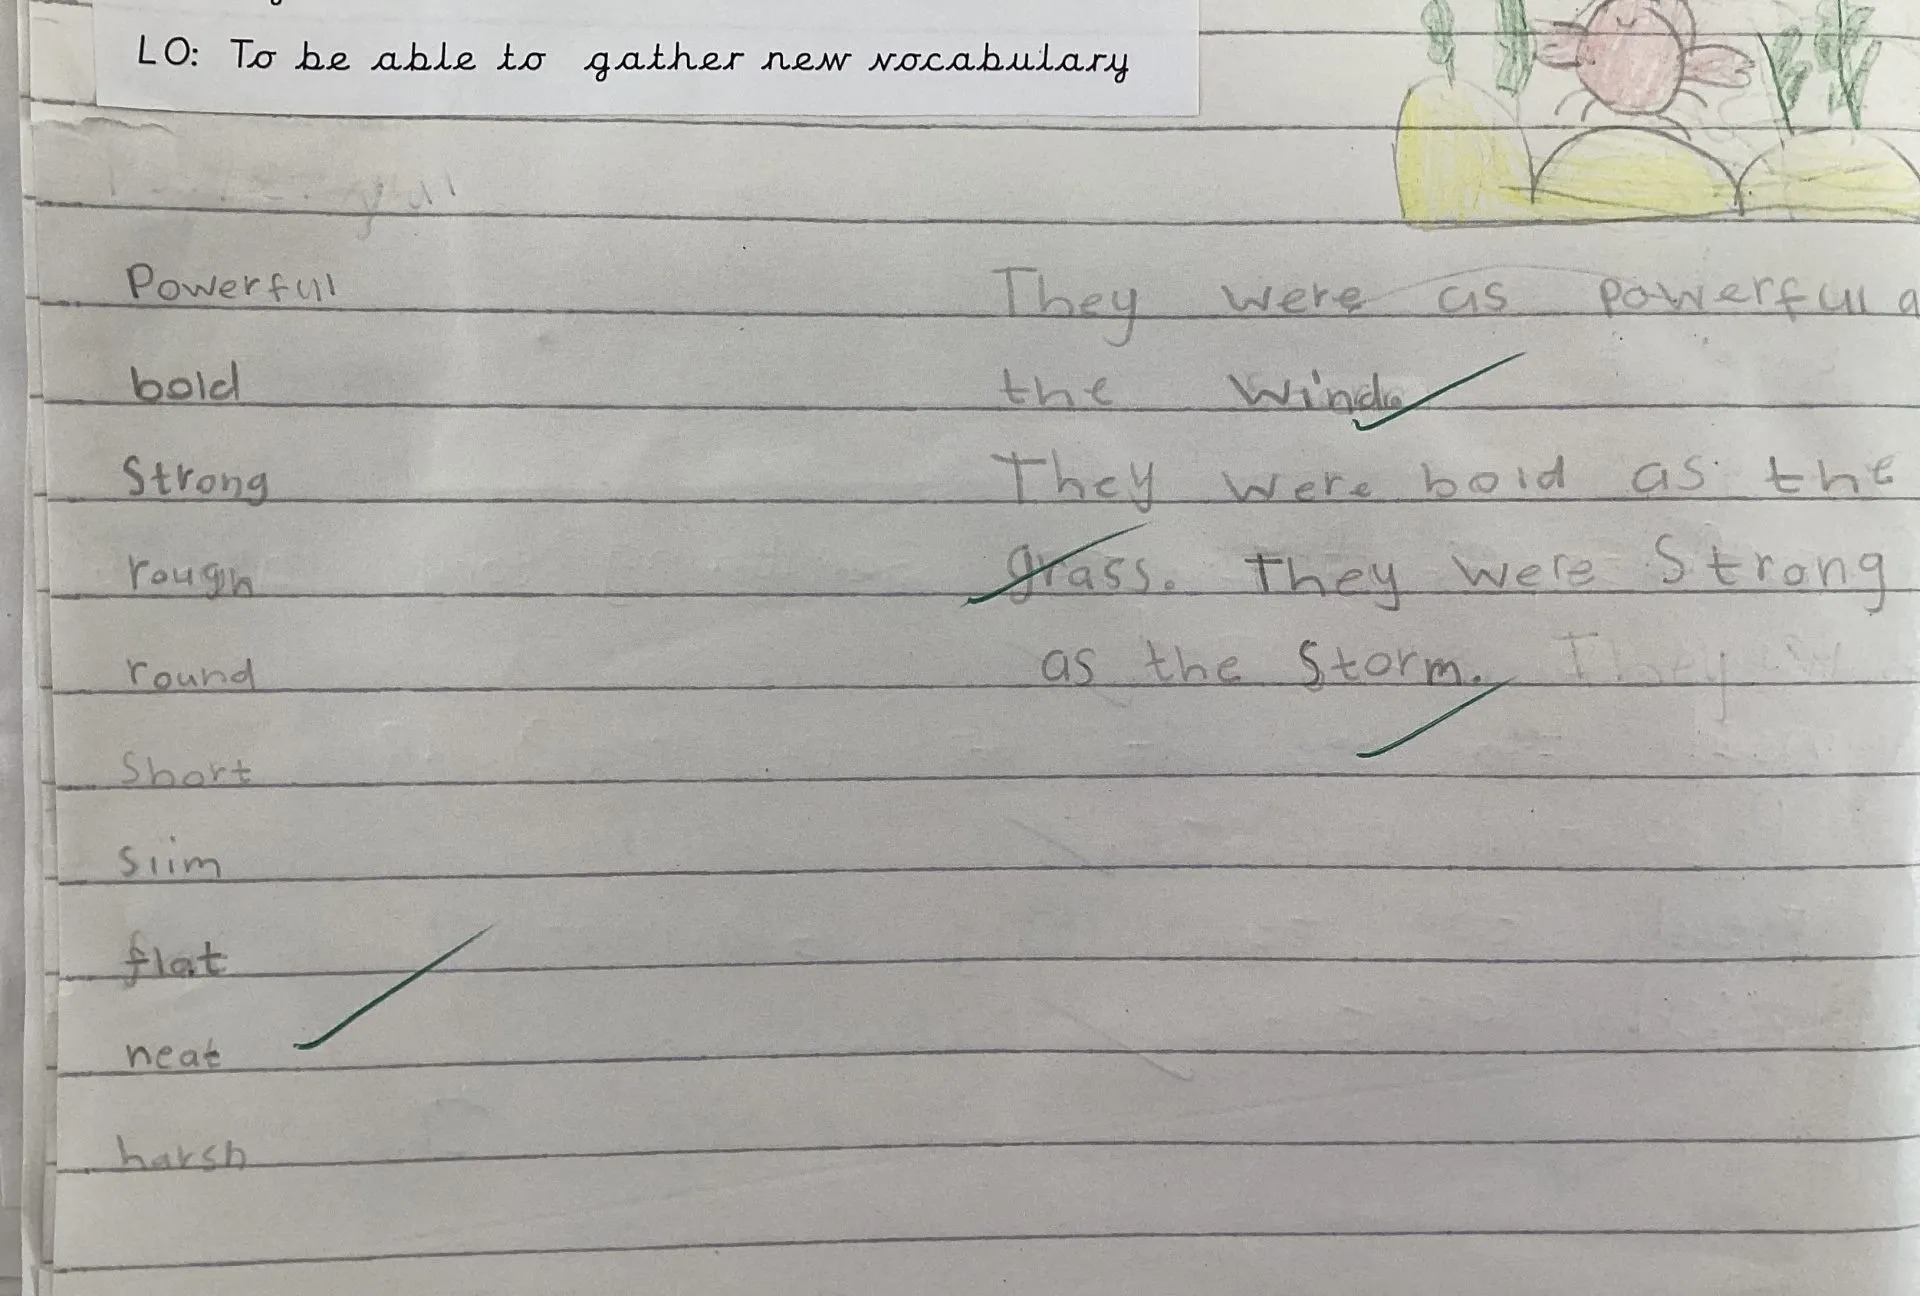 LO: To be able to gather new vocabulary
Powerful
bold
Strong
rough
round
Short
slim
flat
neat
harsh
They were as powerful a
the wind
They were bold as the
grass. They were Strong
as the Storm. They